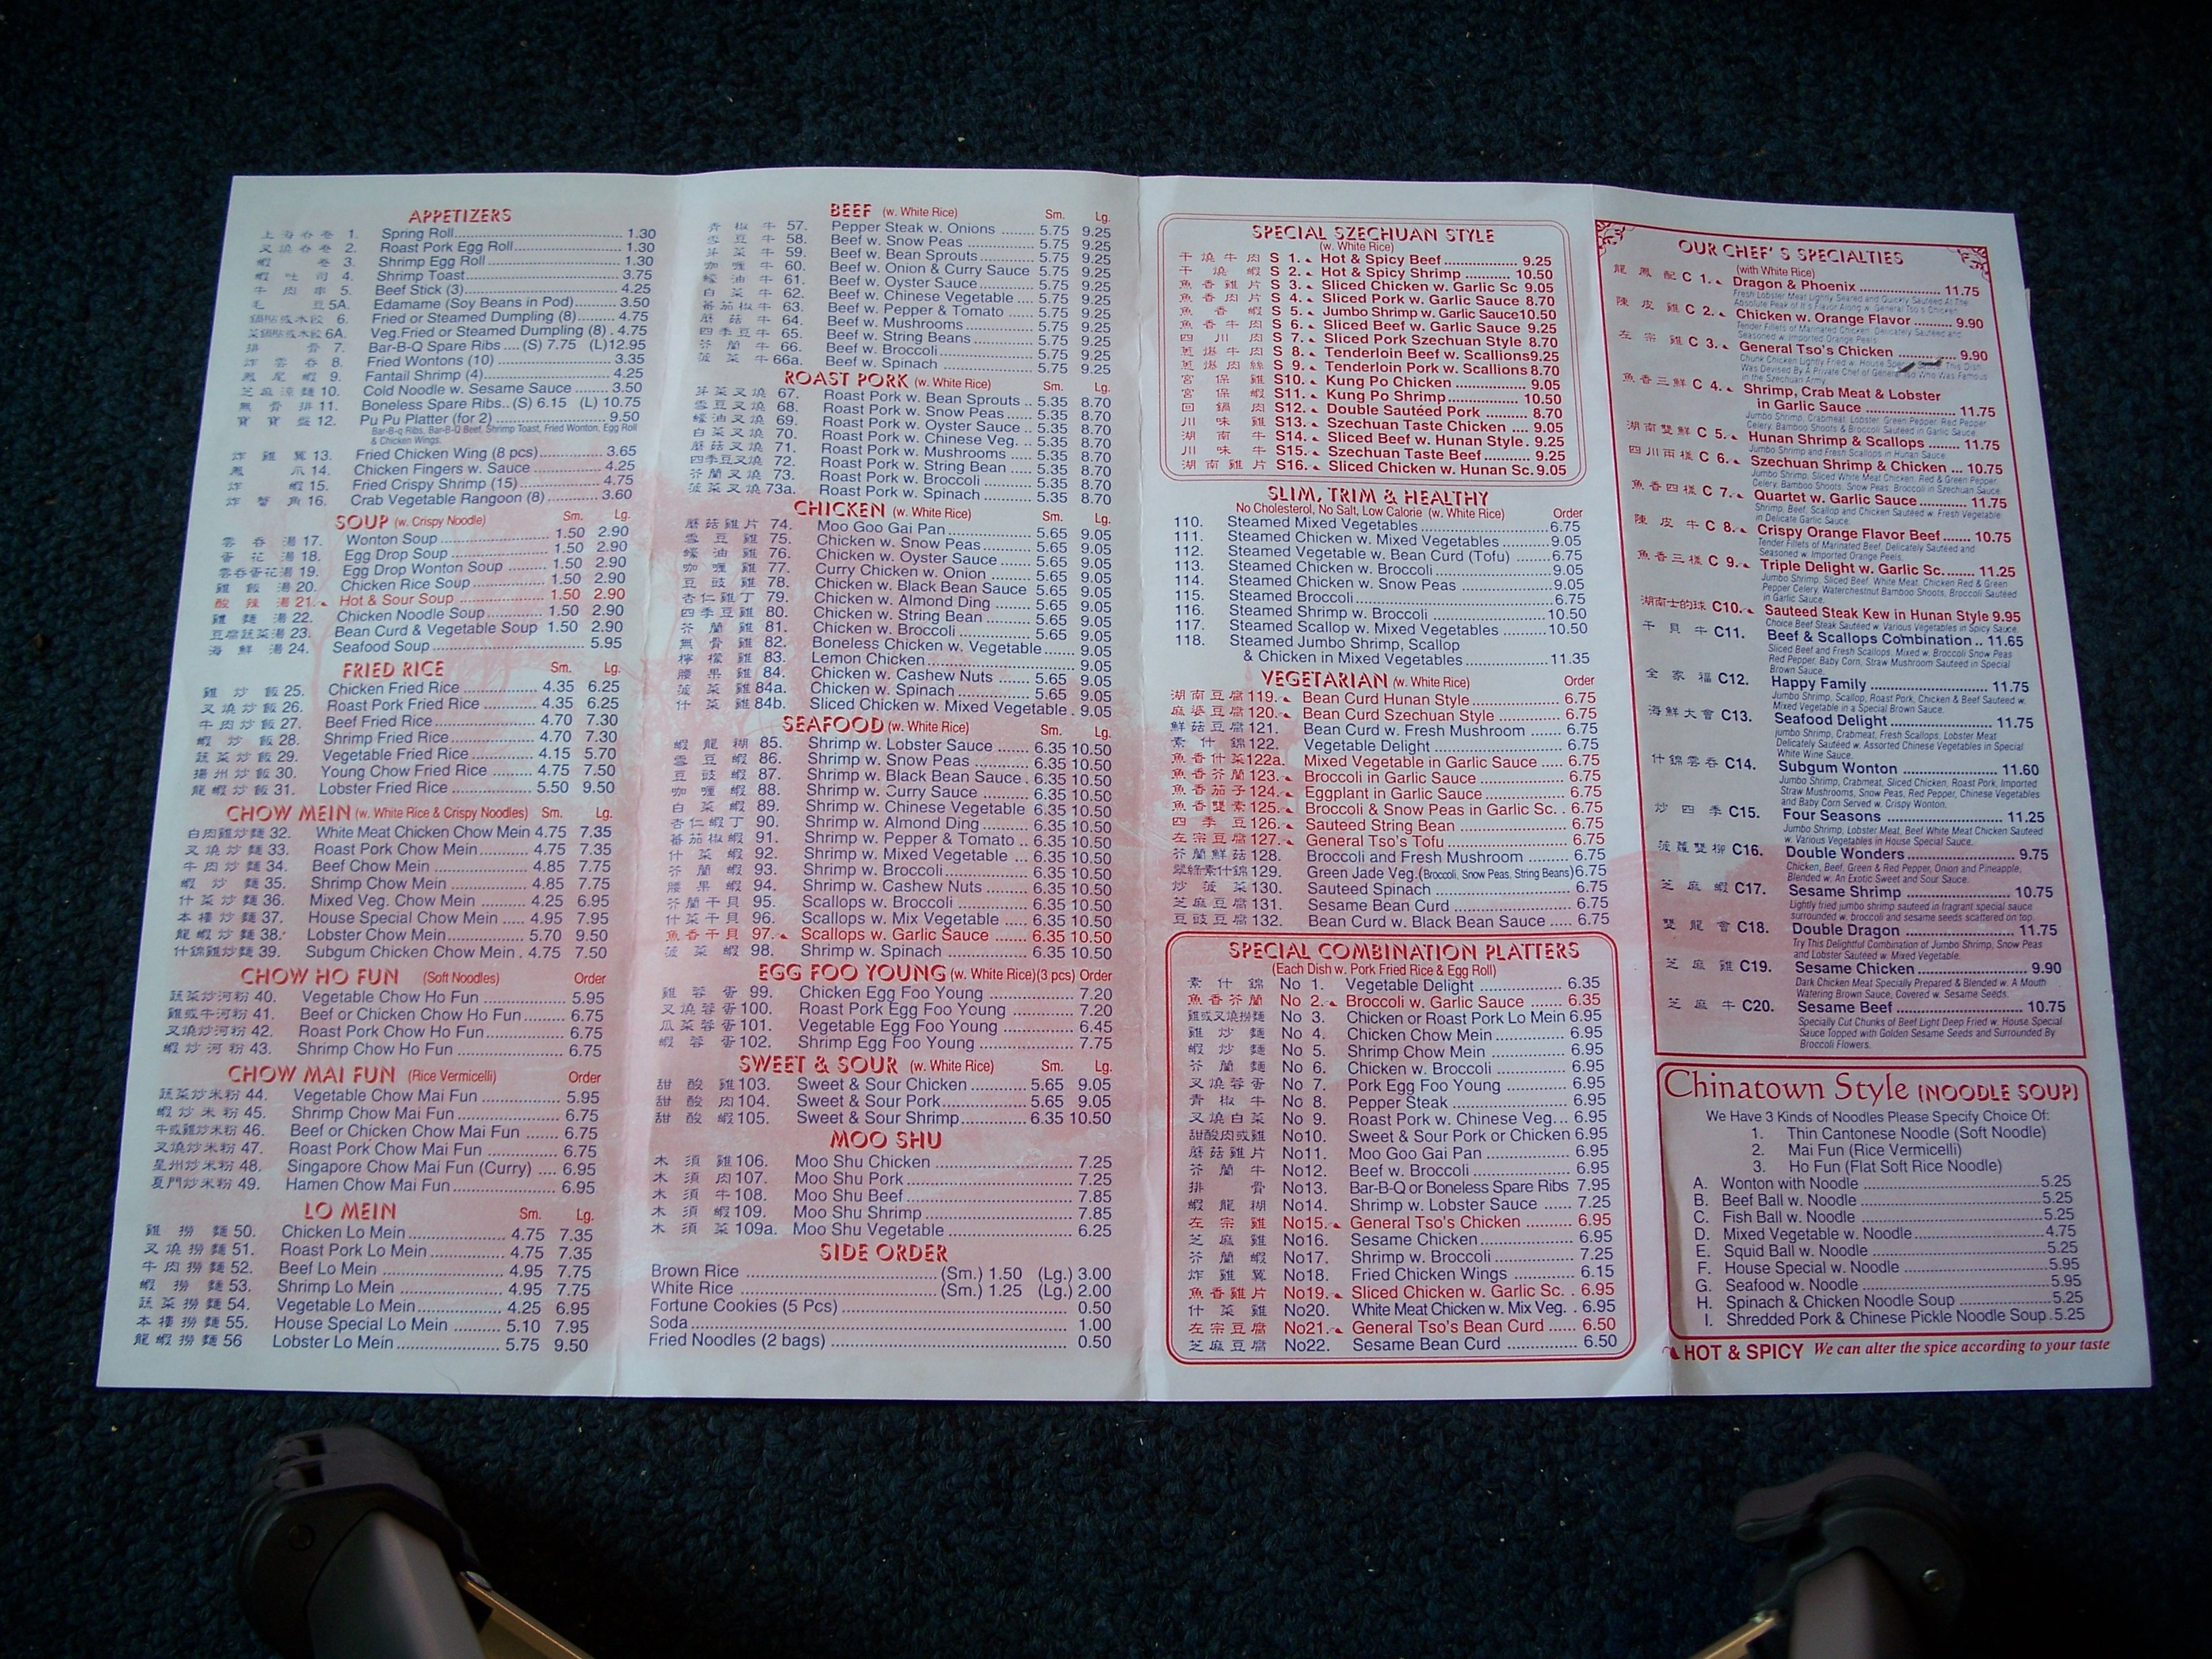 APPETIZERS
上海春卷 1. Spring Roll 1.30
叉燒春卷 2. Roast Pork Egg Roll 1.30
蝦卷 3. Shrimp Egg Roll 1.30
蝦吐司 4. Shrimp Toast 3.75
牛肉串 5. Beef Stick (3) 4.25
毛豆 5A. Edamame (Soy Beans in Pod) 3.50
鍋貼或水餃 6. Fried or Steamed Dumpling (8) 4.75
菜鍋貼或水餃 6A. Veg.Fried or Steamed Dumpling (8) . 4.75
排骨 7. Bar-B-Q Spare Ribs .... (S) 7.75 (L)12.95
炸雲吞 8. Fried Wontons (10) 3.35
鳳尾蝦 9. Fantail Shrimp (4) 4.25
芝麻涼麵 10. Cold Noodle w. Sesame Sauce 3.50
無骨排 11. Boneless Spare Ribs.. (S) 6.15 (L) 10.75
寶寶盤 12. Pu Pu Platter (for 2) 9.50
Bar-B-q Ribs, Bar-B-Q Beef, Shrimp Toast, Fried Wonton, Egg Roll
& Chicken Wings.
炸雞翼 13. Fried Chicken Wing (8 pcs) 3.65
鳳爪 14. Chicken Fingers w. Sauce 4.25
炸蝦 15. Fried Crispy Shrimp (15) 4.75
炸蟹角 16. Crab Vegetable Rangoon (8) 3.60
SOUP (w. Crispy Noodle) Sm. Lg.
雲吞湯 17. Wonton Soup 1.50 2.90
蛋花湯 18. Egg Drop Soup 1.50 2.90
雲吞蛋花湯 19. Egg Drop Wonton Soup 1.50 2.90
雞飯湯 20. Chicken Rice Soup 1.50 2.90
酸辣湯 21. Hot & Sour Soup 1.50 2.90
雞麵湯 22. Chicken Noodle Soup 1.50 2.90
豆腐蔬菜湯 23. Bean Curd & Vegetable Soup 1.50 2.90
海鮮湯 24. Seafood Soup 5.95
FRIED RICE Sm. Lg.
雞炒飯 25. Chicken Fried Rice 4.35 6.25
叉燒炒飯 26. Roast Pork Fried Rice 4.35 6.25
牛肉炒飯 27. Beef Fried Rice 4.70 7.30
蝦炒飯 28. Shrimp Fried Rice 4.70 7.30
蔬菜炒飯 29. Vegetable Fried Rice 4.15 5.70
揚州炒飯 30. Young Chow Fried Rice 4.75 7.50
龍蝦炒飯 31. Lobster Fried Rice 5.50 9.50
CHOW MEIN (w. White Rice & Crispy Noodles) Sm. Lg.
白肉雞炒麵 32. White Meat Chicken Chow Mein 4.75 7.35
叉燒炒麵 33. Roast Pork Chow Mein 4.75 7.35
牛肉炒麵 34. Beef Chow Mein 4.85 7.75
蝦炒麵 35. Shrimp Chow Mein 4.85 7.75
什菜炒麵 36. Mixed Veg. Chow Mein 4.25 6.95
本樓炒麵 37. House Special Chow Mein 4.95 7.95
龍蝦炒麵 38. Lobster Chow Mein 5.70 9.50
什錦雞炒麵 39. Subgum Chicken Chow Mein . 4.75 7.50
CHOW HO FUN (Soft Noodles) Order
蔬菜炒河粉 40. Vegetable Chow Ho Fun 5.95
雞或牛河粉 41. Beef or Chicken Chow Ho Fun 6.75
叉燒炒河粉 42. Roast Pork Chow Ho Fun 6.75
蝦炒河粉 43. Shrimp Chow Ho Fun 6.75
CHOW MAI FUN (Rice Vermicelli) Order
蔬菜炒米粉 44. Vegetable Chow Mai Fun 5.95
蝦炒米粉 45. Shrimp Chow Mai Fun 6.75
牛或雞炒米粉 46. Beef or Chicken Chow Mai Fun 6.75
叉燒炒米粉 47. Roast Pork Chow Mai Fun 6.75
星州炒米粉 48. Singapore Chow Mai Fun (Curry) 6.95
夏門炒米粉 49. Hamen Chow Mai Fun 6.95
LO MEIN Sm. Lg.
雞撈麵 50. Chicken Lo Mein 4.75 7.35
叉燒撈麵 51. Roast Pork Lo Mein 4.75 7.35
牛肉撈麵 52. Beef Lo Mein 4.95 7.75
蝦撈麵 53. Shrimp Lo Mein 4.95 7.75
蔬菜撈麵 54. Vegetable Lo Mein 4.25 6.95
本樓撈麵 55. House Special Lo Mein 5.10 7.95
龍蝦撈麵 56 Lobster Lo Mein 5.75 9.50
BEEF (w. White Rice) Sm. Lg.
青椒牛 57. Pepper Steak w. Onions 5.75 9.25
雪豆牛 58. Beef w. Snow Peas 5.75 9.25
芽菜牛 59. Beef w. Bean Sprouts 5.75 9.25
咖喱牛 60. Beef w. Onion & Curry Sauce 5.75 9.25
蠔油牛 61. Beef w. Oyster Sauce 5.75 9.25
白菜牛 62. Beef w. Chinese Vegetable 5.75 9.25
蕃茄椒牛 63. Beef w. Pepper & Tomato 5.75 9.25
蘑菇牛 64. Beef w. Mushrooms 5.75 9.25
四季豆牛 65. Beef w. String Beans 5.75 9.25
芥蘭牛 66. Beef w. Broccoli 5.75 9.25
菠菜牛 66a. Beef w. Spinach 5.75 9.25
ROAST PORK (w. White Rice) Sm. Lg.
芽菜叉燒 67. Roast Pork w. Bean Sprouts 5.35 8.70
雪豆叉燒 68. Roast Pork w. Snow Peas 5.35 8.70
蠔油叉燒 69. Roast Pork w. Oyster Sauce 5.35 8.70
白菜叉燒 70. Roast Pork w. Chinese Veg. 5.35 8.70
蘑菇叉燒 71. Roast Pork w. Mushrooms 5.35 8.70
四季豆叉燒 72. Roast Pork w. String Bean 5.35 8.70
芥蘭叉燒 73. Roast Pork w. Broccoli 5.35 8.70
菠菜叉燒 73a. Roast Pork w. Spinach 5.35 8.70
CHICKEN (w. White Rice) Sm. Lg.
蘑菇雞片 74. Moo Goo Gai Pan 5.65 9.05
雪豆雞 75. Chicken w. Snow Peas 5.65 9.05
蠔油雞 76. Chicken w. Oyster Sauce 5.65 9.05
咖喱雞 77. Curry Chicken w. Onion 5.65 9.05
豆豉雞 78. Chicken w. Black Bean Sauce 5.65 9.05
杏仁雞丁 79. Chicken w. Almond Ding 5.65 9.05
四季豆雞 80. Chicken w. String Bean 5.65 9.05
芥蘭雞 81. Chicken w. Broccoli 5.65 9.05
無骨雞 82. Boneless Chicken w. Vegetable 9.05
檸檬雞 83. Lemon Chicken 9.05
腰果雞 84. Chicken w. Cashew Nuts 5.65 9.05
菠菜雞 84a. Chicken w. Spinach 5.65 9.05
什菜雞 84b. Sliced Chicken w. Mixed Vegetable . 9.05
SEAFOOD (w. White Rice) Sm. Lg.
蝦龍糊 85. Shrimp w. Lobster Sauce 6.35 10.50
雪豆蝦 86. Shrimp w. Snow Peas 6.35 10.50
豆豉蝦 87. Shrimp w. Black Bean Sauce 6.35 10.50
咖喱蝦 88. Shrimp w. Curry Sauce 6.35 10.50
白菜蝦 89. Shrimp w. Chinese Vegetable 6.35 10.50
杏仁蝦丁 90. Shrimp w. Almond Ding 6.35 10.50
蕃茄椒蝦 91. Shrimp w. Pepper & Tomato 6.35 10.50
什菜蝦 92. Shrimp w. Mixed Vegetable 6.35 10.50
芥蘭蝦 93. Shrimp w. Broccoli 6.35 10.50
腰果蝦 94. Shrimp w. Cashew Nuts 6.35 10.50
芥蘭干貝 95. Scallops w. Broccoli 6.35 10.50
什菜干貝 96. Scallops w. Mix Vegetable 6.35 10.50
魚香干貝 97. Scallops w. Garlic Sauce 6.35 10.50
菠菜蝦 98. Shrimp w. Spinach 6.35 10.50
EGG FOO YOUNG (w. White Rice)(3 pcs) Order
雞蓉蛋 99. Chicken Egg Foo Young 7.20
叉燒蓉蛋 100. Roast Pork Egg Foo Young 7.20
瓜菜蓉蛋 101. Vegetable Egg Foo Young 6.45
蝦蓉蛋 102. Shrimp Egg Foo Young 7.75
SWEET & SOUR (w. White Rice) Sm. Lg.
甜酸雞 103. Sweet & Sour Chicken 5.65 9.05
甜酸肉 104. Sweet & Sour Pork 5.65 9.05
甜酸蝦 105. Sweet & Sour Shrimp 6.35 10.50
MOO SHU
木須雞 106. Moo Shu Chicken 7.25
木須肉 107. Moo Shu Pork 7.25
木須牛 108. Moo Shu Beef 7.85
木須蝦 109. Moo Shu Shrimp 7.85
木須菜 109a. Moo Shu Vegetable 6.25
SIDE ORDER
Brown Rice (Sm.) 1.50 (Lg.) 3.00
White Rice (Sm.) 1.25 (Lg.) 2.00
Fortune Cookies (5 Pcs) 0.50
Soda 1.00
Fried Noodles (2 bags) 0.50
SPECIAL SZECHUAN STYLE
(w. White Rice)
干燒牛肉 S 1. Hot & Spicy Beef 9.25
干燒蝦 S 2. Hot & Spicy Shrimp 10.50
魚香雞片 S 3. Sliced Chicken w. Garlic Sc 9.05
魚香肉片 S 4. Sliced Pork w. Garlic Sauce 8.70
魚香蝦 S 5. Jumbo Shrimp w. Garlic Sauce10.50
魚香牛肉 S 6. Sliced Beef w. Garlic Sauce 9.25
四川肉 S 7. Sliced Pork Szechuan Style 8.70
蔥爆牛肉 S 8. Tenderloin Beef w. Scallions9.25
蔥爆肉絲 S 9. Tenderloin Pork w. Scallions 8.70
宮保雞 S10. Kung Po Chicken 9.05
宮保蝦 S11. Kung Po Shrimp 10.50
回鍋肉 S12. Double Sautéed Pork 8.70
川味雞 S13. Szechuan Taste Chicken 9.05
湖南牛 S14. Sliced Beef w. Hunan Style . 9.25
川味牛 S15. Szechuan Taste Beef 9.25
湖南雞片 S16. Sliced Chicken w. Hunan Sc. 9.05
SLIM, TRIM & HEALTHY
No Cholesterol, No Salt, Low Calorie (w. White Rice) Order
110. Steamed Mixed Vegetables 6.75
111. Steamed Chicken w. Mixed Vegetables 9.05
112. Steamed Vegetable w. Bean Curd (Tofu) 6.75
113. Steamed Chicken w. Broccoli 9.05
114. Steamed Chicken w. Snow Peas 9.05
115. Steamed Broccoli 6.75
116. Steamed Shrimp w. Broccoli 10.50
117. Steamed Scallop w. Mixed Vegetables 10.50
118. Steamed Jumbo Shrimp, Scallop
& Chicken in Mixed Vegetables 11.35
VEGETARIAN (w. White Rice) Order
湖南豆腐 119. Bean Curd Hunan Style 6.75
麻婆豆腐 120. Bean Curd Szechuan Style 6.75
鮮菇豆腐 121. Bean Curd w. Fresh Mushroom 6.75
素什錦 122. Vegetable Delight 6.75
魚香什菜 122a. Mixed Vegetable in Garlic Sauce 6.75
魚香芥蘭 123. Broccoli in Garlic Sauce 6.75
魚香茄子 124. Eggplant in Garlic Sauce 6.75
魚香雙素 125. Broccoli & Snow Peas in Garlic Sc. . 6.75
四季豆 126. Sauteed String Bean 6.75
左宗豆腐 127. General Tso's Tofu 6.75
芥蘭鮮菇 128. Broccoli and Fresh Mushroom 6.75
翠綠素什錦 129. Green Jade Veg.(Broccoli, Snow Peas, String Beans)6.75
炒菠菜 130. Sauteed Spinach 6.75
芝麻豆腐 131. Sesame Bean Curd 6.75
豆豉豆腐 132. Bean Curd w. Black Bean Sauce 6.75
SPECIAL COMBINATION PLATTERS
(Each Dish w. Pork Fried Rice & Egg Roll)
素什錦 No 1. Vegetable Delight 6.35
魚香芥蘭 No 2. Broccoli w. Garlic Sauce 6.35
雞或叉燒撈麵 No 3. Chicken or Roast Pork Lo Mein 6.95
雞炒麵 No 4. Chicken Chow Mein 6.95
蝦炒麵 No 5. Shrimp Chow Mein 6.95
芥蘭雞 No 6. Chicken w. Broccoli 6.95
叉燒蓉蛋 No 7. Pork Egg Foo Young 6.95
青椒牛 No 8. Pepper Steak 6.95
叉燒白菜 No 9. Roast Pork w. Chinese Veg. 6.95
甜酸肉或雞 No10. Sweet & Sour Pork or Chicken 6.95
蘑菇雞片 No11. Moo Goo Gai Pan 6.95
芥蘭牛 No12. Beef w. Broccoli 6.95
排骨 No13. Bar-B-Q or Boneless Spare Ribs 7.95
蝦龍糊 No14. Shrimp w. Lobster Sauce 7.25
左宗雞 No15. General Tso's Chicken 6.95
芝麻雞 No16. Sesame Chicken 6.95
芥蘭蝦 No17. Shrimp w. Broccoli 7.25
炸雞翼 No18. Fried Chicken Wings 6.15
魚香雞片 No19. Sliced Chicken w. Garlic Sc. . 6.95
什菜雞 No20. White Meat Chicken w. Mix Veg. . 6.95
左宗豆腐 No21. General Tso's Bean Curd 6.50
芝麻豆腐 No22. Sesame Bean Curd 6.50
OUR CHEF'S SPECIALTIES
(with White Rice)
龍鳳配 C 1. Dragon & Phoenix 11.75
Fresh Lobster Meat Lightly Seared and Quickly Sauteed At The
Absolute Peak of It's Flavor Along w. General Tso's Chicken
陳皮雞 C 2. Chicken w. Orange Flavor 9.90
Tender Fillets of Marinated Chicken, Delicately Sauteed and
Seasoned w. Imported Orange Peels.
左宗雞 C 3. General Tso's Chicken 9.90
Chunk Chicken Lightly Fried w. House Special This Dish
Was Devised By A Private Chef of General Tso Who Was Famous
in the Szechuan Army.
魚香三鮮 C 4. Shrimp, Crab Meat & Lobster
in Garlic Sauce 11.75
Jumbo Shrimp, Crabmeat, Lobster, Green Pepper, Red Pepper,
Celery, Bamboo Shoots & Broccoli Sauteed in Garlic Sauce
湖南雙鮮 C 5. Hunan Shrimp & Scallops 11.75
Jumbo Shrimp and Fresh Scallops in Hunan Sauce
四川兩樣 C 6. Szechuan Shrimp & Chicken 10.75
Jumbo Shrimp, Sliced White Meat Chicken, Red & Green Pepper,
Celery, Bamboo Shoots, Snow Peas, Broccoli in Szechuan Sauce
魚香四樣 C 7. Quartet w. Garlic Sauce 11.75
Shrimp, Beef, Scallop and Chicken Sauteed w. Fresh Vegetable
in Delicate Garlic Sauce.
陳皮牛 C 8. Crispy Orange Flavor Beef 10.75
Tender Fillets of Marinated Beef, Delicately Sautéed and
Seasoned w. Imported Orange Peels.
魚香三樣 C 9. Triple Delight w. Garlic Sc. 11.25
Jumbo Shrimp, Sliced Beef, White Meat, Chicken Red & Green
Pepper Celery, Waterchestnut Bamboo Shoots, Broccoli Sautéed
in Garlic Sauce.
湖南士的球 C10. Sauteed Steak Kew in Hunan Style 9.95
Choice Beef Steak Sautéed w. Various Vegetables in Spicy Sauce.
干貝牛 C11. Beef & Scallops Combination 11.65
Sliced Beef and Fresh Scallops, Mixed w. Broccoli Snow Peas
Red Pepper, Baby Corn, Straw Mushroom Sauteed in Special
Brown Sauce.
全家福 C12. Happy Family 11.75
Jumbo Shrimp, Scallop, Roast Pork, Chicken & Beef Sauteed w.
Mixed Vegetable in a Special Brown Sauce.
海鮮大會 C13. Seafood Delight 11.75
jumbo Shrimp, Crabmeat, Fresh Scallops, Lobster Meat
Delicately Sauteed w. Assorted Chinese Vegetables in Special
White Wine Sauce.
什錦雲吞 C14. Subgum Wonton 11.60
Jumbo Shrimp, Crabmeat, Sliced Chicken, Roast Pork, Imported
Straw Mushrooms, Snow Peas, Red Pepper, Chinese Vegetables
and Baby Corn Served w. Crispy Wonton.
炒四季 C15. Four Seasons 11.25
Jumbo Shrimp, Lobster Meat, Beef White Meat Chicken Sauteed
w. Various Vegetables in House Special Sauce.
菠蘿雙柳 C16. Double Wonders 9.75
Chicken, Beef, Green & Red Pepper, Onion and Pineapple,
Blended w. An Exotic Sweet and Sour Sauce.
芝麻蝦 C17. Sesame Shrimp 10.75
Lightly fried jumbo shrimp sauteed in fragrant special sauce
surrounded w. broccoli and sesame seeds scattered on top.
雙龍會 C18. Double Dragon 11.75
Try This Delightful Combination of Jumbo Shrimp, Snow Peas
and Lobster Sautéed w. Mixed Vegetable.
芝麻雞 C19. Sesame Chicken 9.90
Dark Chicken Meat Specially Prepared & Blended w. A Mouth
Watering Brown Sauce, Covered w. Sesame Seeds.
芝麻牛 C20. Sesame Beef 10.75
Specially Cut Chunks of Beef Light Deep Fried w. House Special
Sauce Topped with Golden Sesame Seeds and Surrounded By
Broccoli Flowers.
Chinatown Style (NOODLE SOUP)
We Have 3 Kinds of Noodles Please Specify Choice Of:
1. Thin Cantonese Noodle (Soft Noodle)
2. Mai Fun (Rice Vermicelli)
3. Ho Fun (Flat Soft Rice Noodle)
A. Wonton with Noodle 5.25
B. Beef Ball w. Noodle 5.25
C. Fish Ball w. Noodle 5.25
D. Mixed Vegetable w. Noodle 4.75
E. Squid Ball w. Noodle 5.25
F. House Special w. Noodle 5.95
G. Seafood w. Noodle 5.95
H. Spinach & Chicken Noodle Soup 5.25
I. Shredded Pork & Chinese Pickle Noodle Soup 5.25
HOT & SPICY We can alter the spice according to your taste